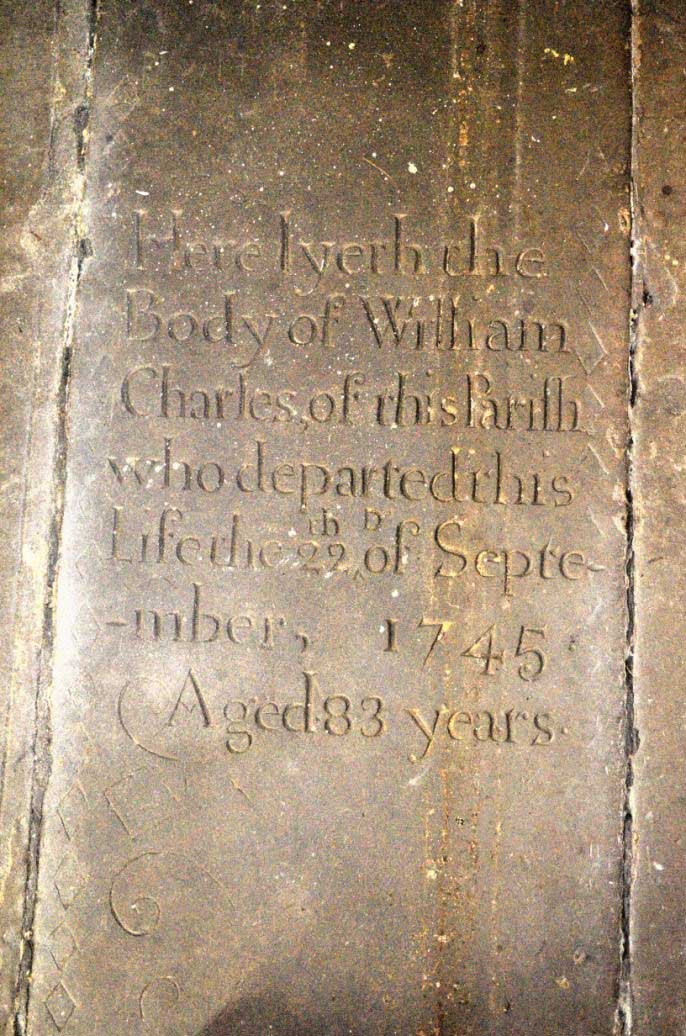 Here lyeth the
Body of William
Charles, of this Parish
who departed this
Life the 22th D. of Septe-
-mber, 1745
Aged 83 years.